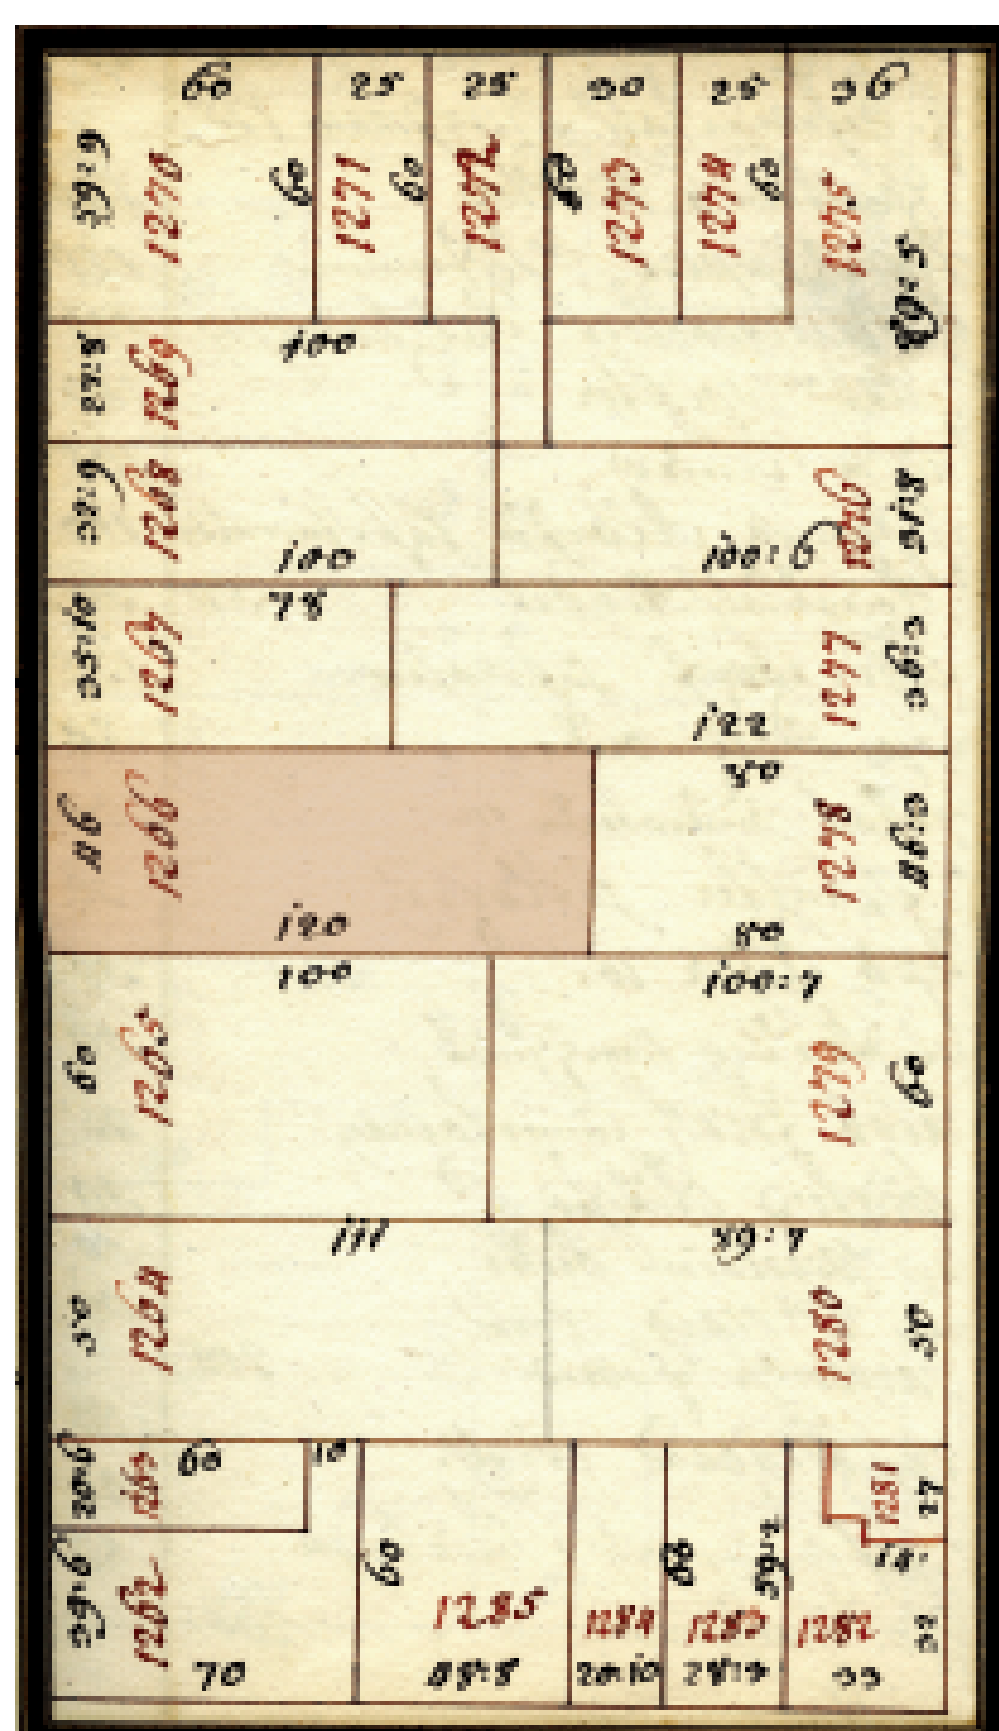 60
25
25
30
25
36
59:9
1270
60
1271
60
1272
60
1273
1274
60
1275
89:5
27:8
1269
100
32:9
1268
100
100:6
1276
31:8
35:10
1267
78
122
1277
36:3
46
1266
120
50
80
1278
46:3
60
1265
100
100:7
1279
60
50
1264
111
89:7
1280
50
20:6
1263
60
10
1281
27
39:6
1262
70
60
1285
48:8
1284
20:10
60
1283
28:9
59:2
1282
33
14:
32